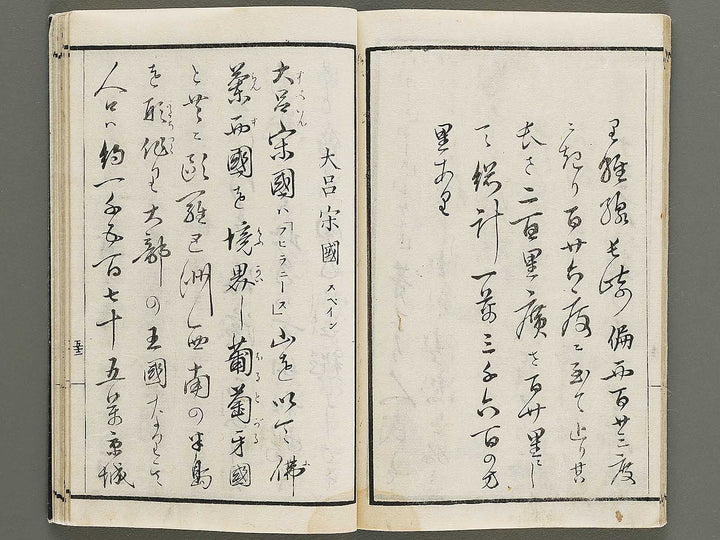 里雖線長崎偏西百廿三度
ニ起り百廿六度ニ至て止り其
長さ二百里廣さ百廿里にし
て総計一萬三千六百の方
里あり
大呂宋國 スペイン
大呂宋國ハ「ヒラニース」山を以て佛
蘭西國を境界し葡萄牙國
と共ニ歐羅巴洲西南の半島
を形作り大部の王國なりとす
人口ハ約一千五百七十五萬京城
五十三